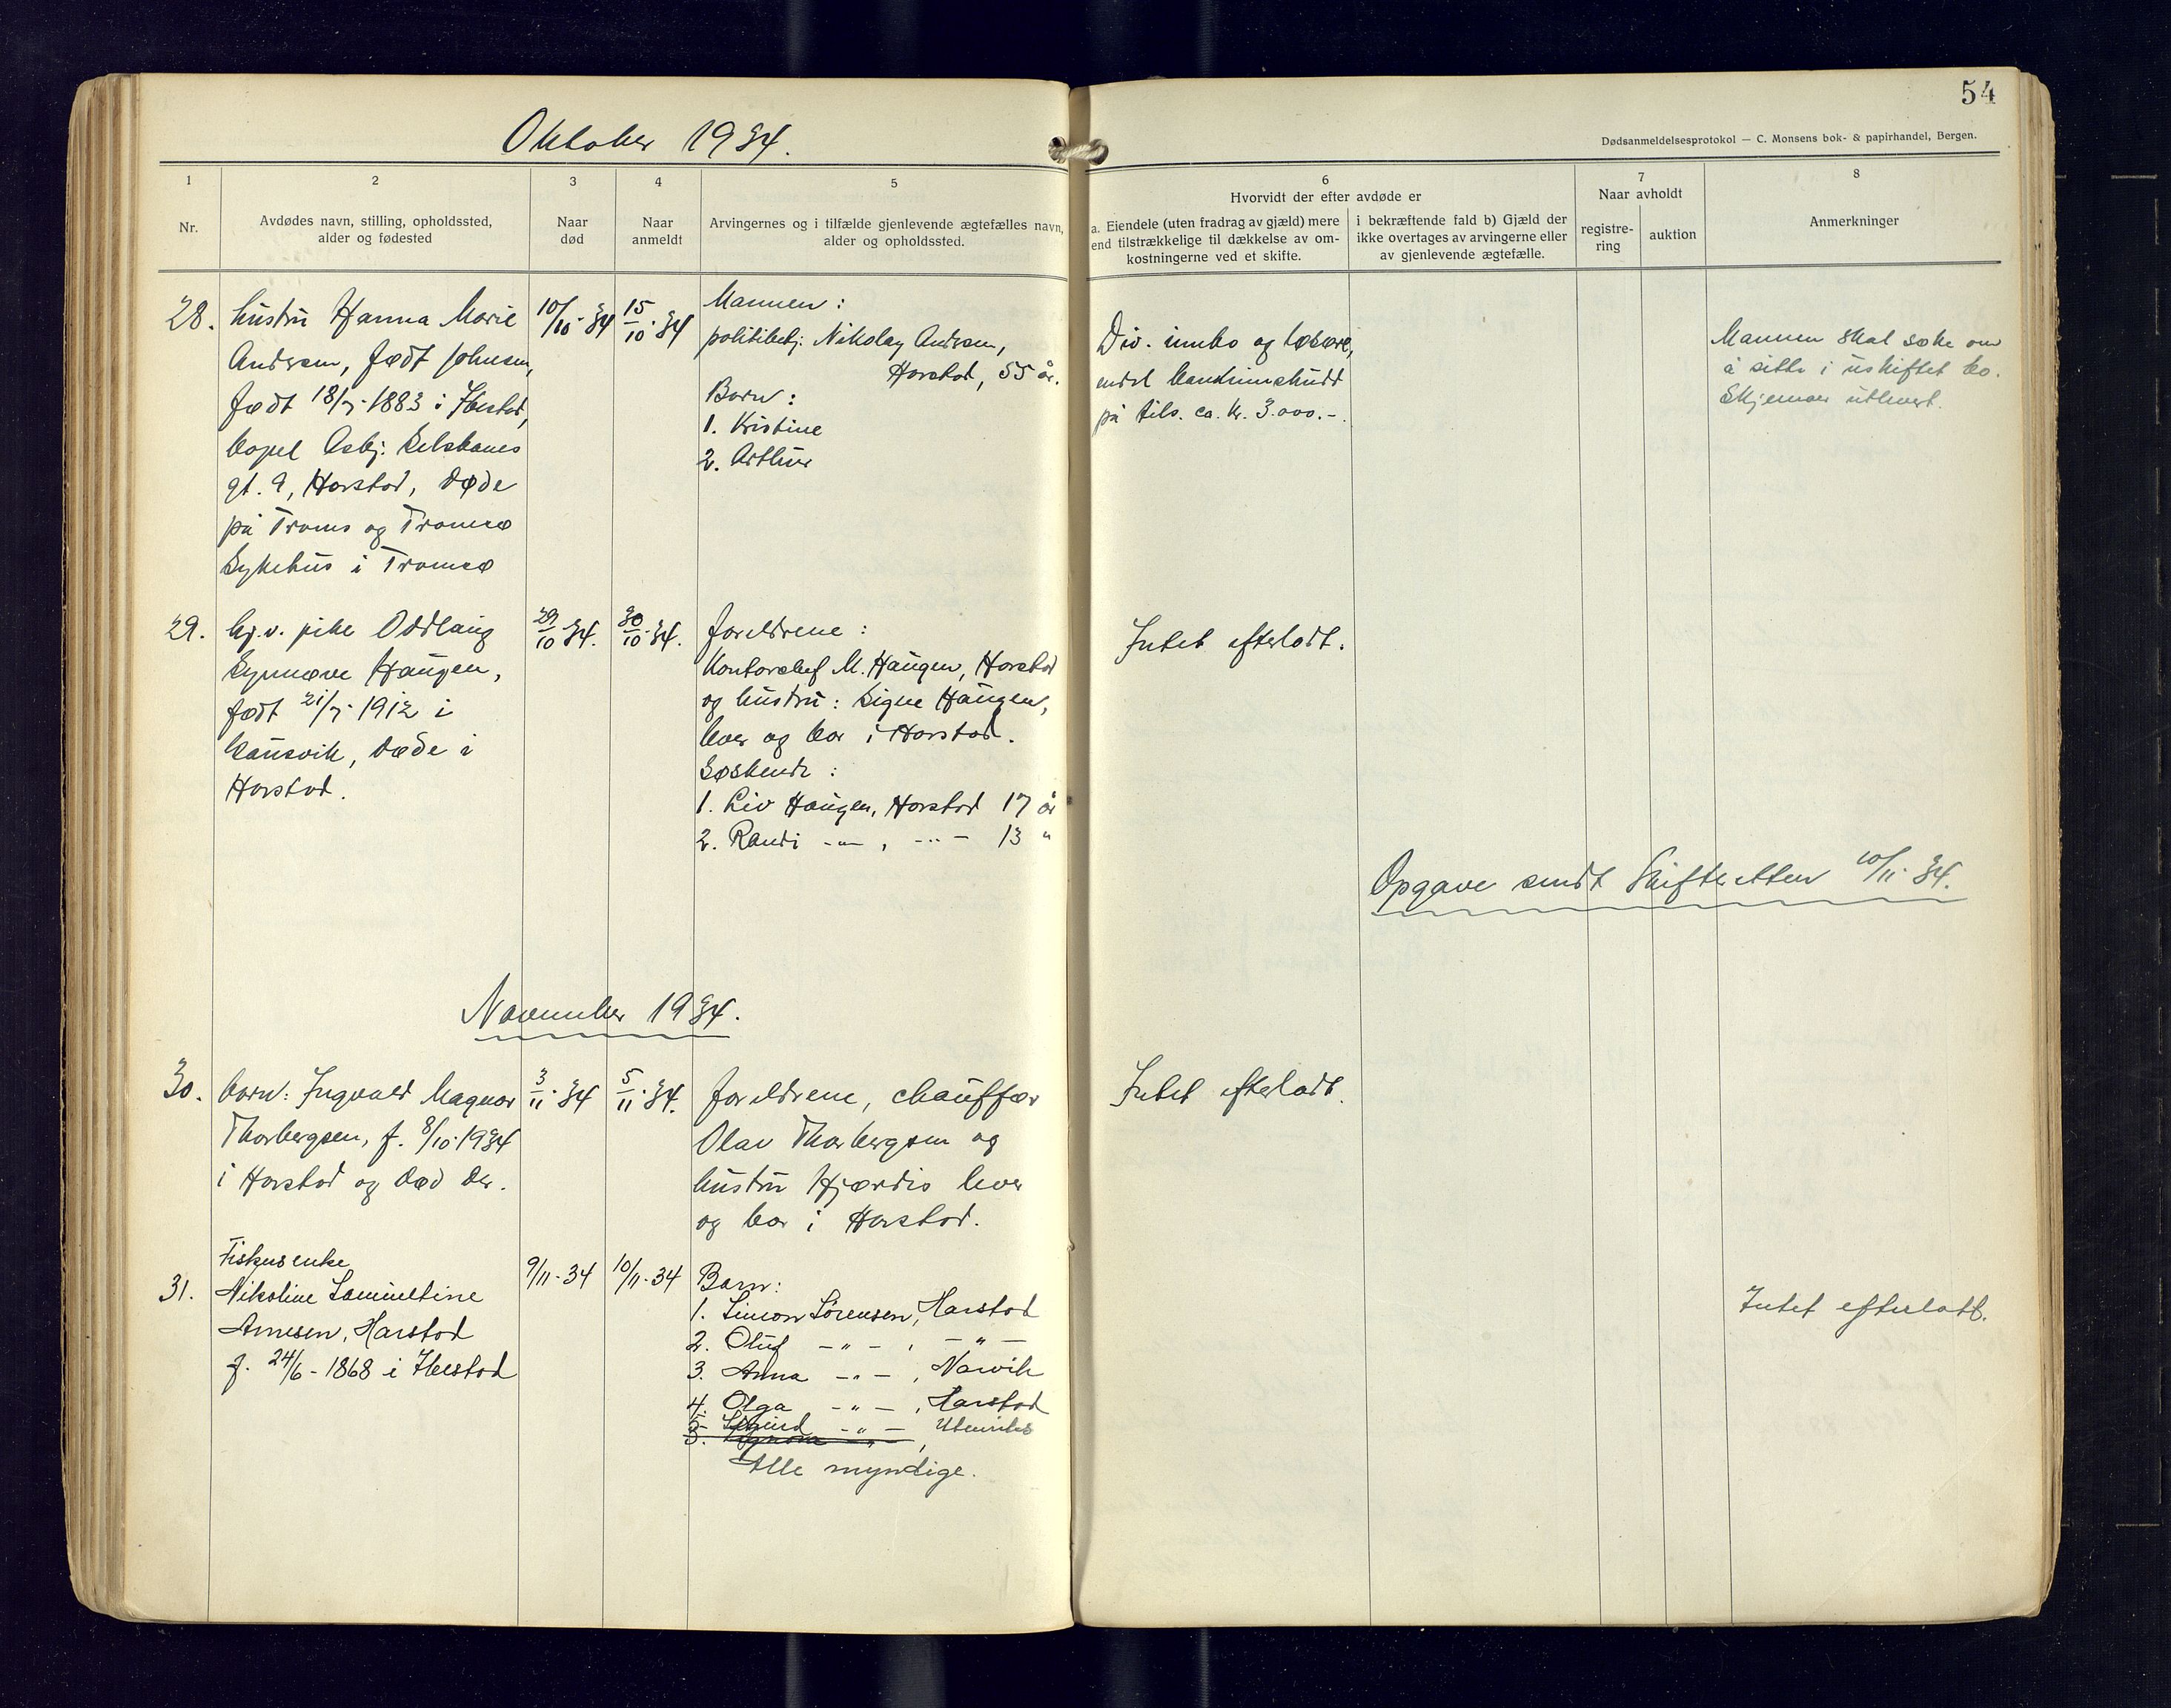 54
Oktober 1934.
Dødsanmeldelsesprotokol — C. Monsens bok- & papirhandel, Bergen.
1
2
3
4
5
6
7
8
Nr.
Avdødes navn, stilling, opholdssted,
alder og fødested
Naar
død
Naar
anmeldt
Arvingernes og i tilfælde gjenlevende ægtefælles navn,
alder og opholdssted.
Hvorvidt der efter avdøde er
a. Eiendele (uten fradrag av gjæld) mere
end tilstrækkelige til dækkelse av om-
kostningerne ved et skifte.
i bekræftende fald b) Gjæld der
ikke overtages av arvingerne eller
av gjenlevende ægtefælle.
Naar avholdt
registre-
ring
auktion
Anmerkninger
28.
hustru Hanna Marie
Andersen, født Johnsen,
født 18/7-1883 i Ibestad,
bopel Asbj. Selsbanes
gt. 9, Harstad, døde
på Troms og Tromsø
Sykehus i Tromsø
10/10-34
15/10-34
Mannen:
politibetj. Nikolay Andersen,
Harstad, 55 år.
Barn:
1. Kristine
2. Arthur
Div. innbo og løsøre,
endel bankinnskudd
på tils. ca. kr. 3.000.-.
Mannen skal søke om
å sitte i uskiftet bo.
Skjemaer utlevert.
29.
hj.v. pike Oddlaug
Synnøve Haugen,
født 21/7-1912 i
Gausvik, døde i
Harstad.
29/10-34.
30/10-34.
foreldrene:
Kontorchef M. Haugen, Harstad
og hustru: Signe Haugen,
lever og bor i Harstad.
Søskende:
1. Liv Haugen, Harstad 17 år
2. Randi -"- , -"- 13 "
Intet efterladt.
Opgave sendt Skifteretten 10/11-34.
November 1934.
30.
barn: Ingvald Magnar
Thorbergsen, f. 8/10-1934
i Harstad og død der.
3/11-34
5/11-34.
foreldrene, chauffør
Olav Thorbergsen og
hustru Hjørdis lever
og bor i Harstad.
Intet efterladt.
31.
Fiskerenke
Nikoline Samueline
Arnesen, Harstad
f. 24/6-1868 i Ibestad
9/11-34
10/11-34
Barn:
1. Simon Sørensen, Harstad
2. Oluf -"- , -"-
3. Anna -"- , Narvik
4. Olga -"- , Harstad
5. Sigurd -"- , Utenriks
Alle myndige.
Intet efterlatt.